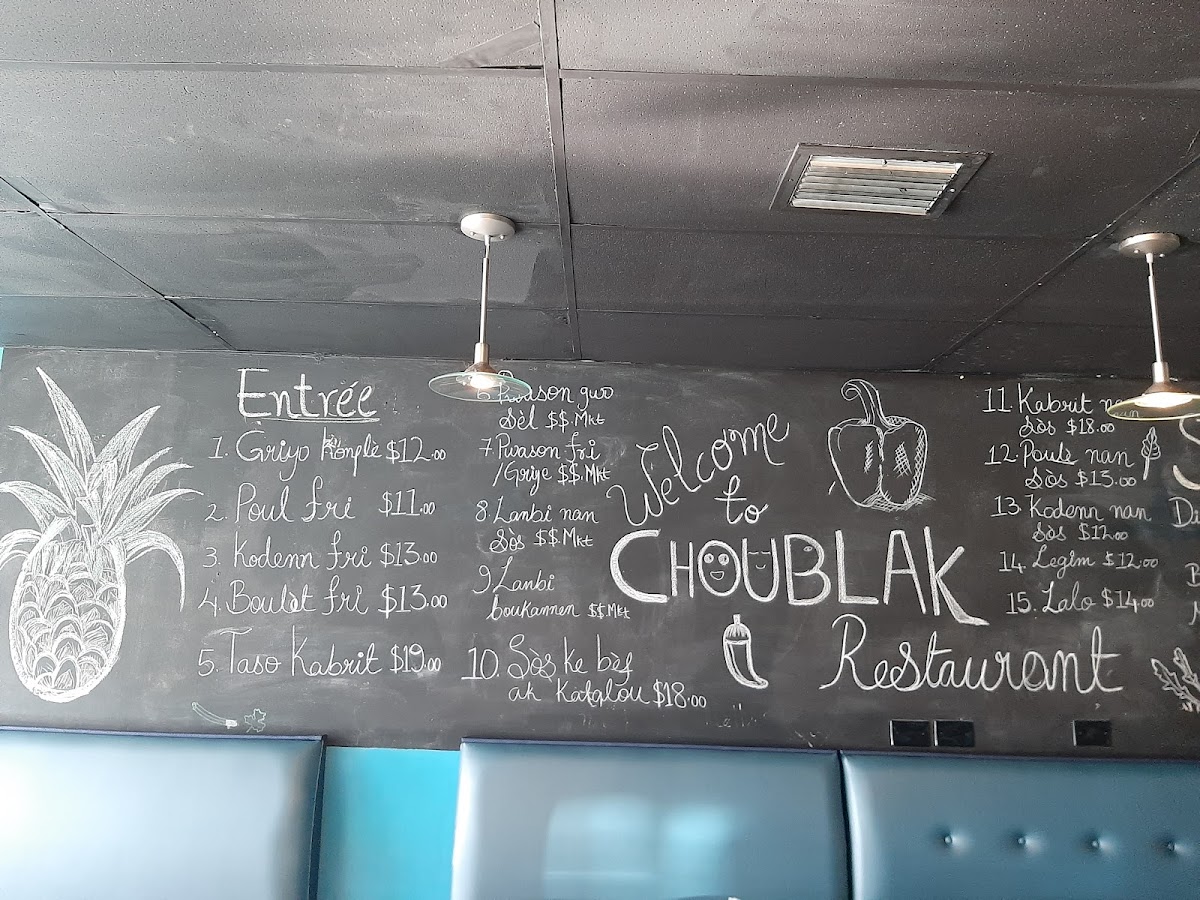 Entrée
1. Griyo Konplè $12.00
2. Poul fri $11.00
3. Kodenn fri $13.00
4. Boulèt fri $13.00
5. Taso Kabrit $19.00
6. Pwason gwo
Sèl $$.Mkt
7. Pwason fri
/Griye $$.Mkt
8. Lanbi nan
Sòs $$.Mkt
9. Lanbi
boukannen $$Mkt
10. Sòs ke bèf
ak Kalalou $18.00
Welcome
to
CHOUBLAK
Restaurant
11. Kabrit nan
Sòs $18.00
12. Poule nan
Sòs $13.00
13. Kodenn nan
Sòs $12.00
14. Legim $12.00
15. Lalo $14.00